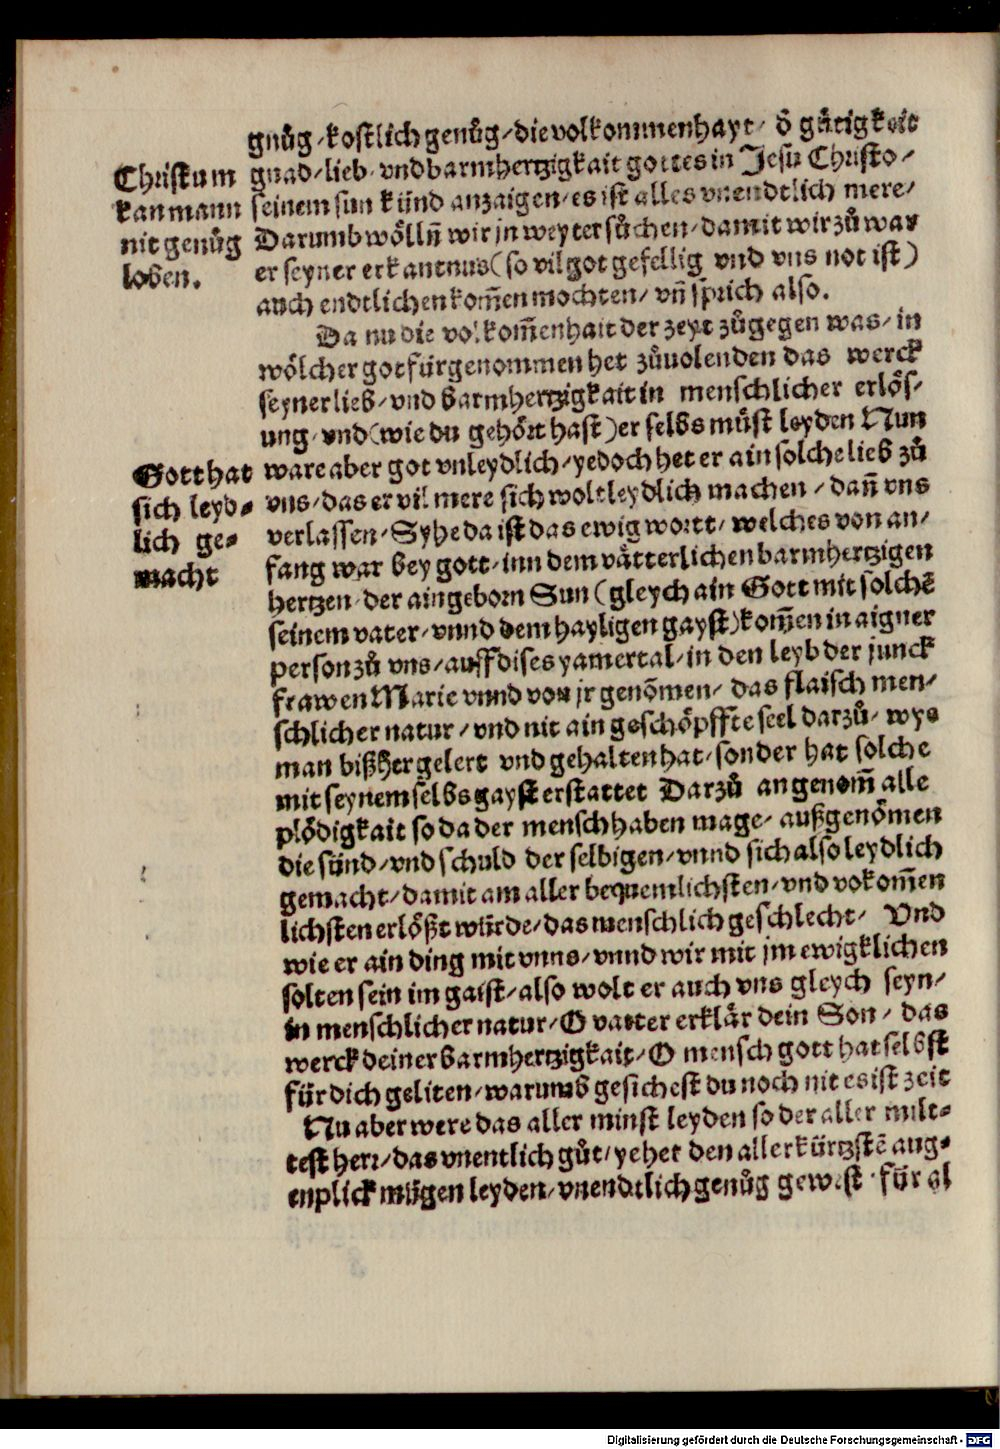 gnůg / kostlich genůg / die volkommenhayt / ð gůtigkeit
gnad / lieb / vnd barmhertzigkait gottes in Jesu Christo /
seinem sun künd anzaigen / es ist alles vnendtlich mere /
Darumb wölln̄ wir jn weyter sůchen / damit wir zů war
er seyner erkantnus (so vil got gefellig vnd vns not ist)
auch endtlichen kom̄en mochten / vn̄ sprich also.
Christum
kan mann
nit genůg
loben.
Da nu die volkom̄enhait der zeyt zůgegen was / in
wölcher got fürgenommen het zůuolenden das werck
seyner lieb / vnd barmhertzigkait in menschlicher erlös /
ung / vnd (wie du gehört hast) er selbs můst leyden Nun
ware aber got vnleydlich / yedoch het er ain solche lieb zů
vns / das er vil mere sich wolt leydlich machen / dan̄ vns
verlassen / Syhe da ist das ewig wortt / welches von an /
fang war bey gott / inn dem vätterlichen barmhertzigen
hertzen / der aingeborn Sun (gleych ain Gott mit solchē
seinem vater / vnnd dem hayligen gayst) kom̄en in aigner
person zů vns / auff dises yamertal / in den leyb der junck
frawen Marie vnnd von jr genōmen / das flaisch men /
schlicher natur / vnd nit ain geschöpffte seel darzů / wye
man bißher gelert vnd gehalten hat / sonder hat solche
mit seynem selbs gayst erstattet Darzů angenom̄ alle
plödigkait so da der mensch haben mage / außgenōmen
die sünd / vnd schuld der selbigen / vnnd sich also leydlich
gemacht / damit am aller bequemlichsten / vnd vokom̄en
lichsten erlößt würde / das menschlich geschlecht / Vnd
wie er ain ding mit vnns / vnnd wir mit jm ewigklichen
solten sein im gaist / also wolt er auch vns gleych seyn /
in menschlicher natur / O vatter erklär dein Son / das
werck deiner barmhertzigkait / O mensch gott hat selbst
für dich geliten / warumb gesichest du noch nit es ist zeit
Gott hat
sich leyd⸗
lich ge⸗
macht
Nu aber were das aller minst leyden so der aller milt⸗
test herr / das vnentlich gůt / yehet den allerkürtzstē aug⸗
enplick mügen leyden / vnendtlich genůg gewest / für al
Digitalisierung gefördert durch die Deutsche Forschungsgemeinschaft - DFG